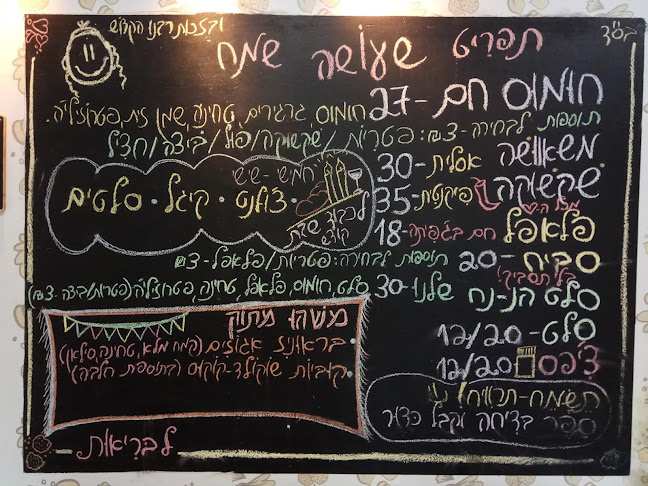 בס"ד
ובזכות רבנו הקדוש
תפריט שעושה שמח
חומוס חם -27
חומוס, גרגירים, טחינה, שמן זית, פטרוזיליה.
תוספות לבחירה -3₪: פטריות/שקשוקה/פול/ביצה/חציל
משאוושה אסלית -30
שקשוקה פיקנטית -35
פלאפל חם בגפיתה -18
סביח -20
תוספות לבחירה: פטריות/פלאפל -3₪
סלט הנ-נח שלנו -30
סלט, חומוס, פלאפל, טחינה, פטרוזיליה (פטריות/ביצה -3₪)
סלט -12/20
צ'יפס 12/20
תשמח-תרוויח!
ספר בדיחה וקבל כדור
חמישי - שישי
צ'ולנט • קיגל • סלטים
לכבוד שבת קודש
משהו מתוק
• בראוניז אגוזים (קמח מלא, טחינה, סילאן)
• קוביות שוקולד-קוקוס (בתוספת חלבה)
לבריאות